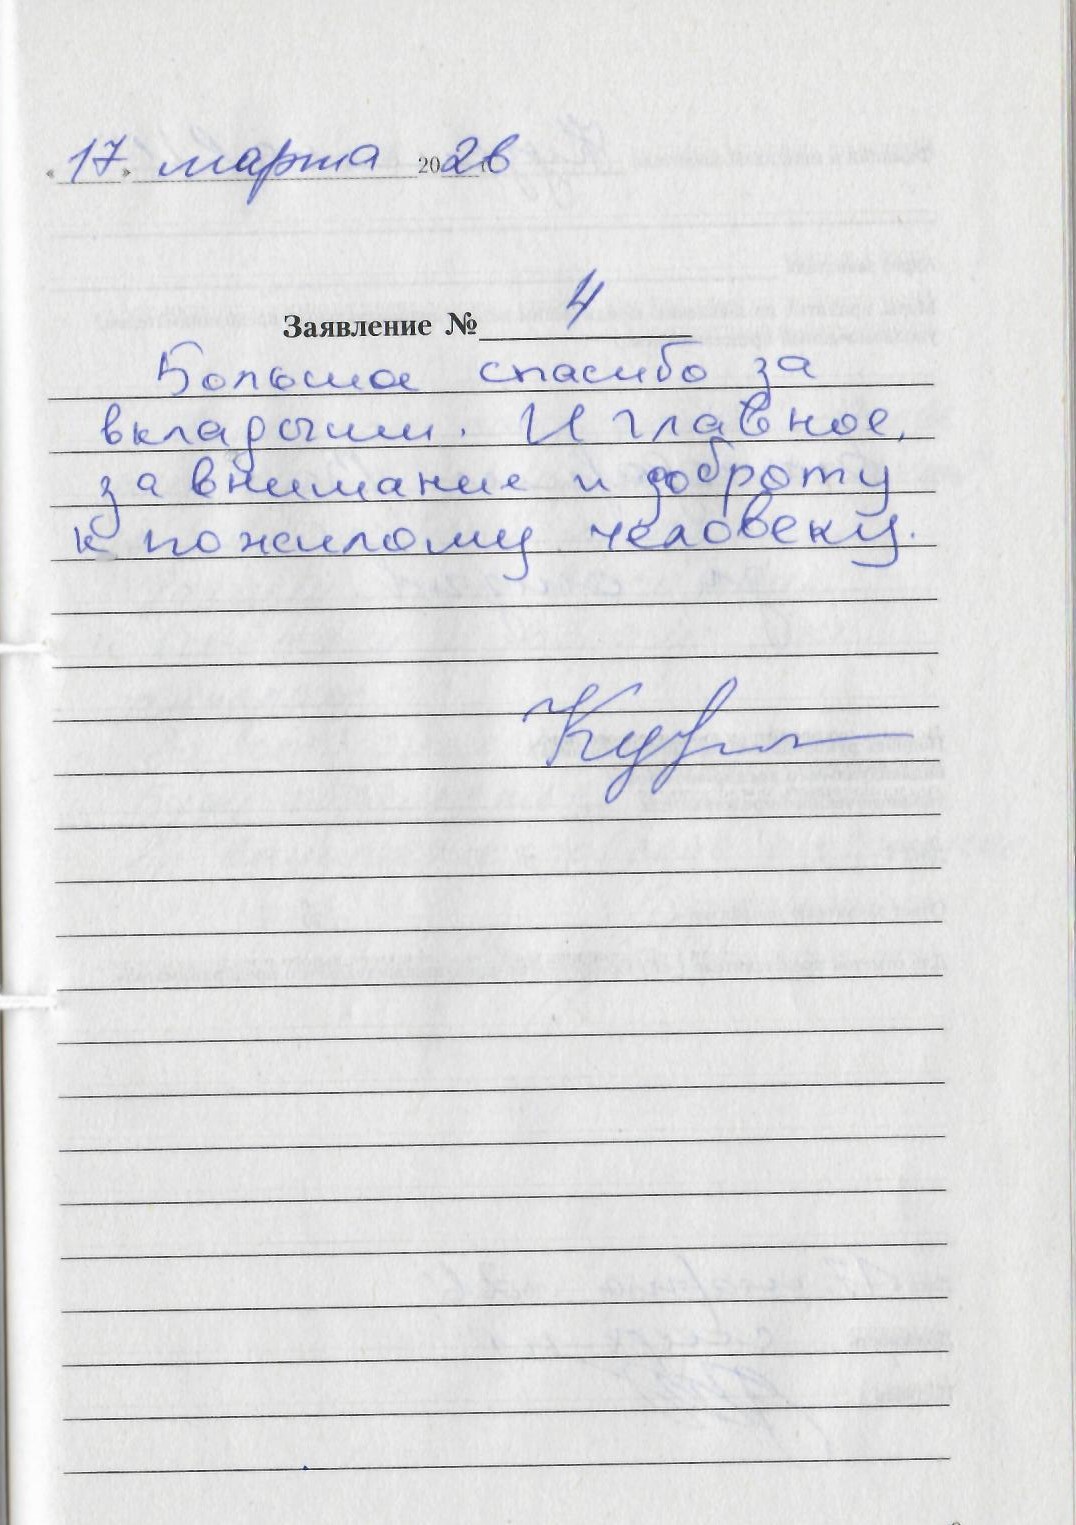 «17» марта 2026
Заявление № 4
Большое спасибо за
вкладыши. И главное,
за внимание и доброту
к пожилому человеку.